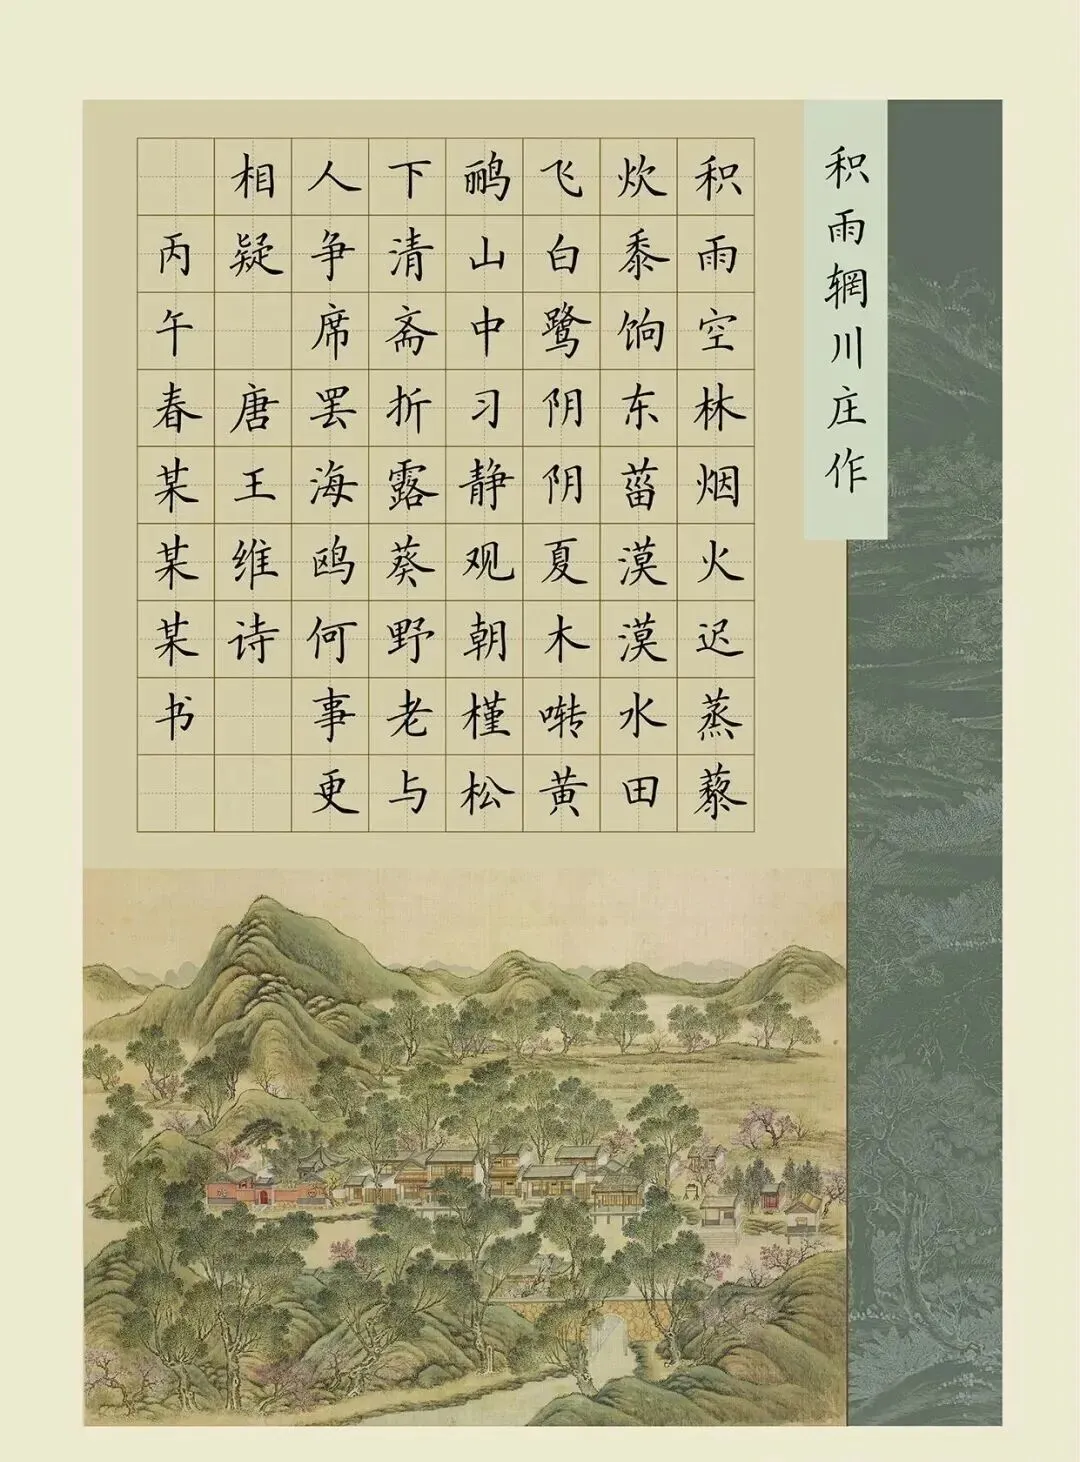 积雨辋川庄作
积雨空林烟火迟蒸藜
炊黍饷东菑漠漠水田
飞白鹭阴阴夏木啭黄
鹂山中习静观朝槿松
下清斋折露葵野老与
人争席罢海鸥何事更
相疑 唐王维诗
丙午春某某某书